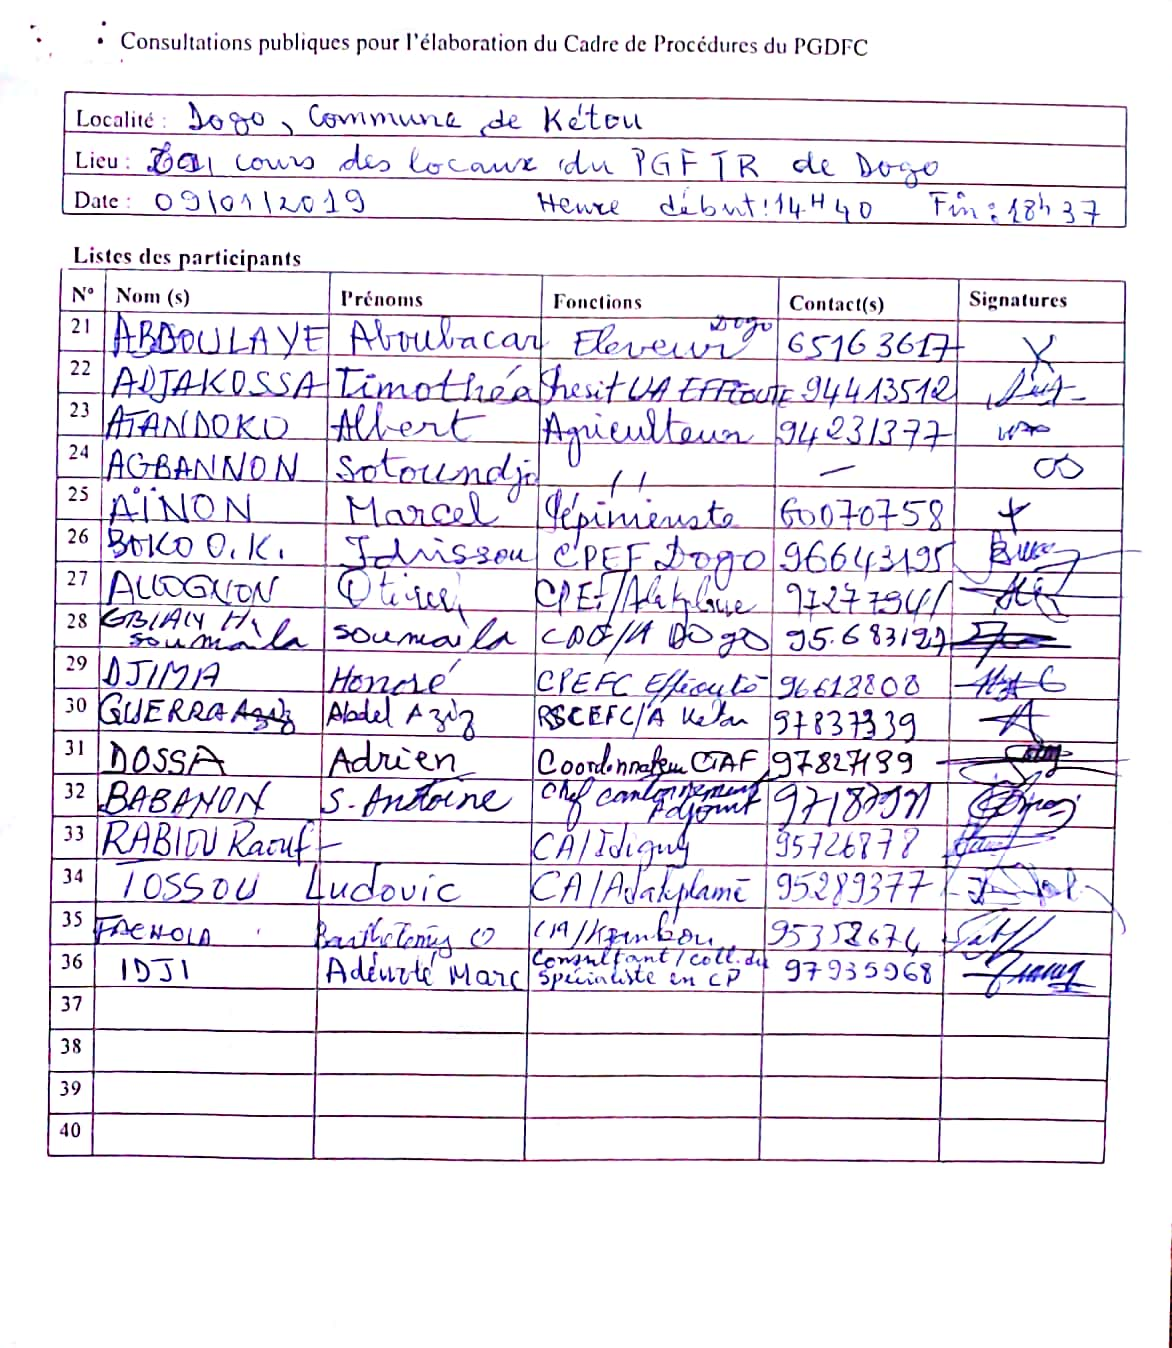 Consultations publiques pour l'élaboration du Cadre de Procédures du PGDFC
Localité : Dogo, Commune de Kétou
Lieu : cours des locaux du PGFTR de Dogo
Date : 09/01/2019 Heure début : 14H40 Fin : 18h37
Listes des participants
N° Nom (s) Prénoms Fonctions Contact(s) Signatures
21 ABDOULAYE Aboubacar Eleveur Dogo 65163617
22 ADJAKOSSA Timothéa UA EFFEOUTE 94413512
23 ATANDOKO Albert Agriculteur 94231377
24 AGBANNON Sotoundji // —
25 AÏNON Marcel Pépiniériste 60070758
26 BOKO O.K. Idrissou CPEF Dogo 96643195
27 ALLOGNON
28 soumaïla Dogo 95.683127
29 DJIMA Honoré CPEFC Effeoutè 96618808
30 GUERRA Aziz Abdel Aziz RSCEFC/A Kétou 97837339
31 DOSSA Adrien Coordonnateur 97827139
32 BABANON S. Antoine Chef cantonnement Adjoint
33 RABIOU Raouf — CA/Idigny 95726878
34 TOSSOU Ludovic CA/Adakplamè 95289377
35 95352674
36 IDJI Marc Consultant / coll. du spécialiste en CP 97935968
37
38
39
40